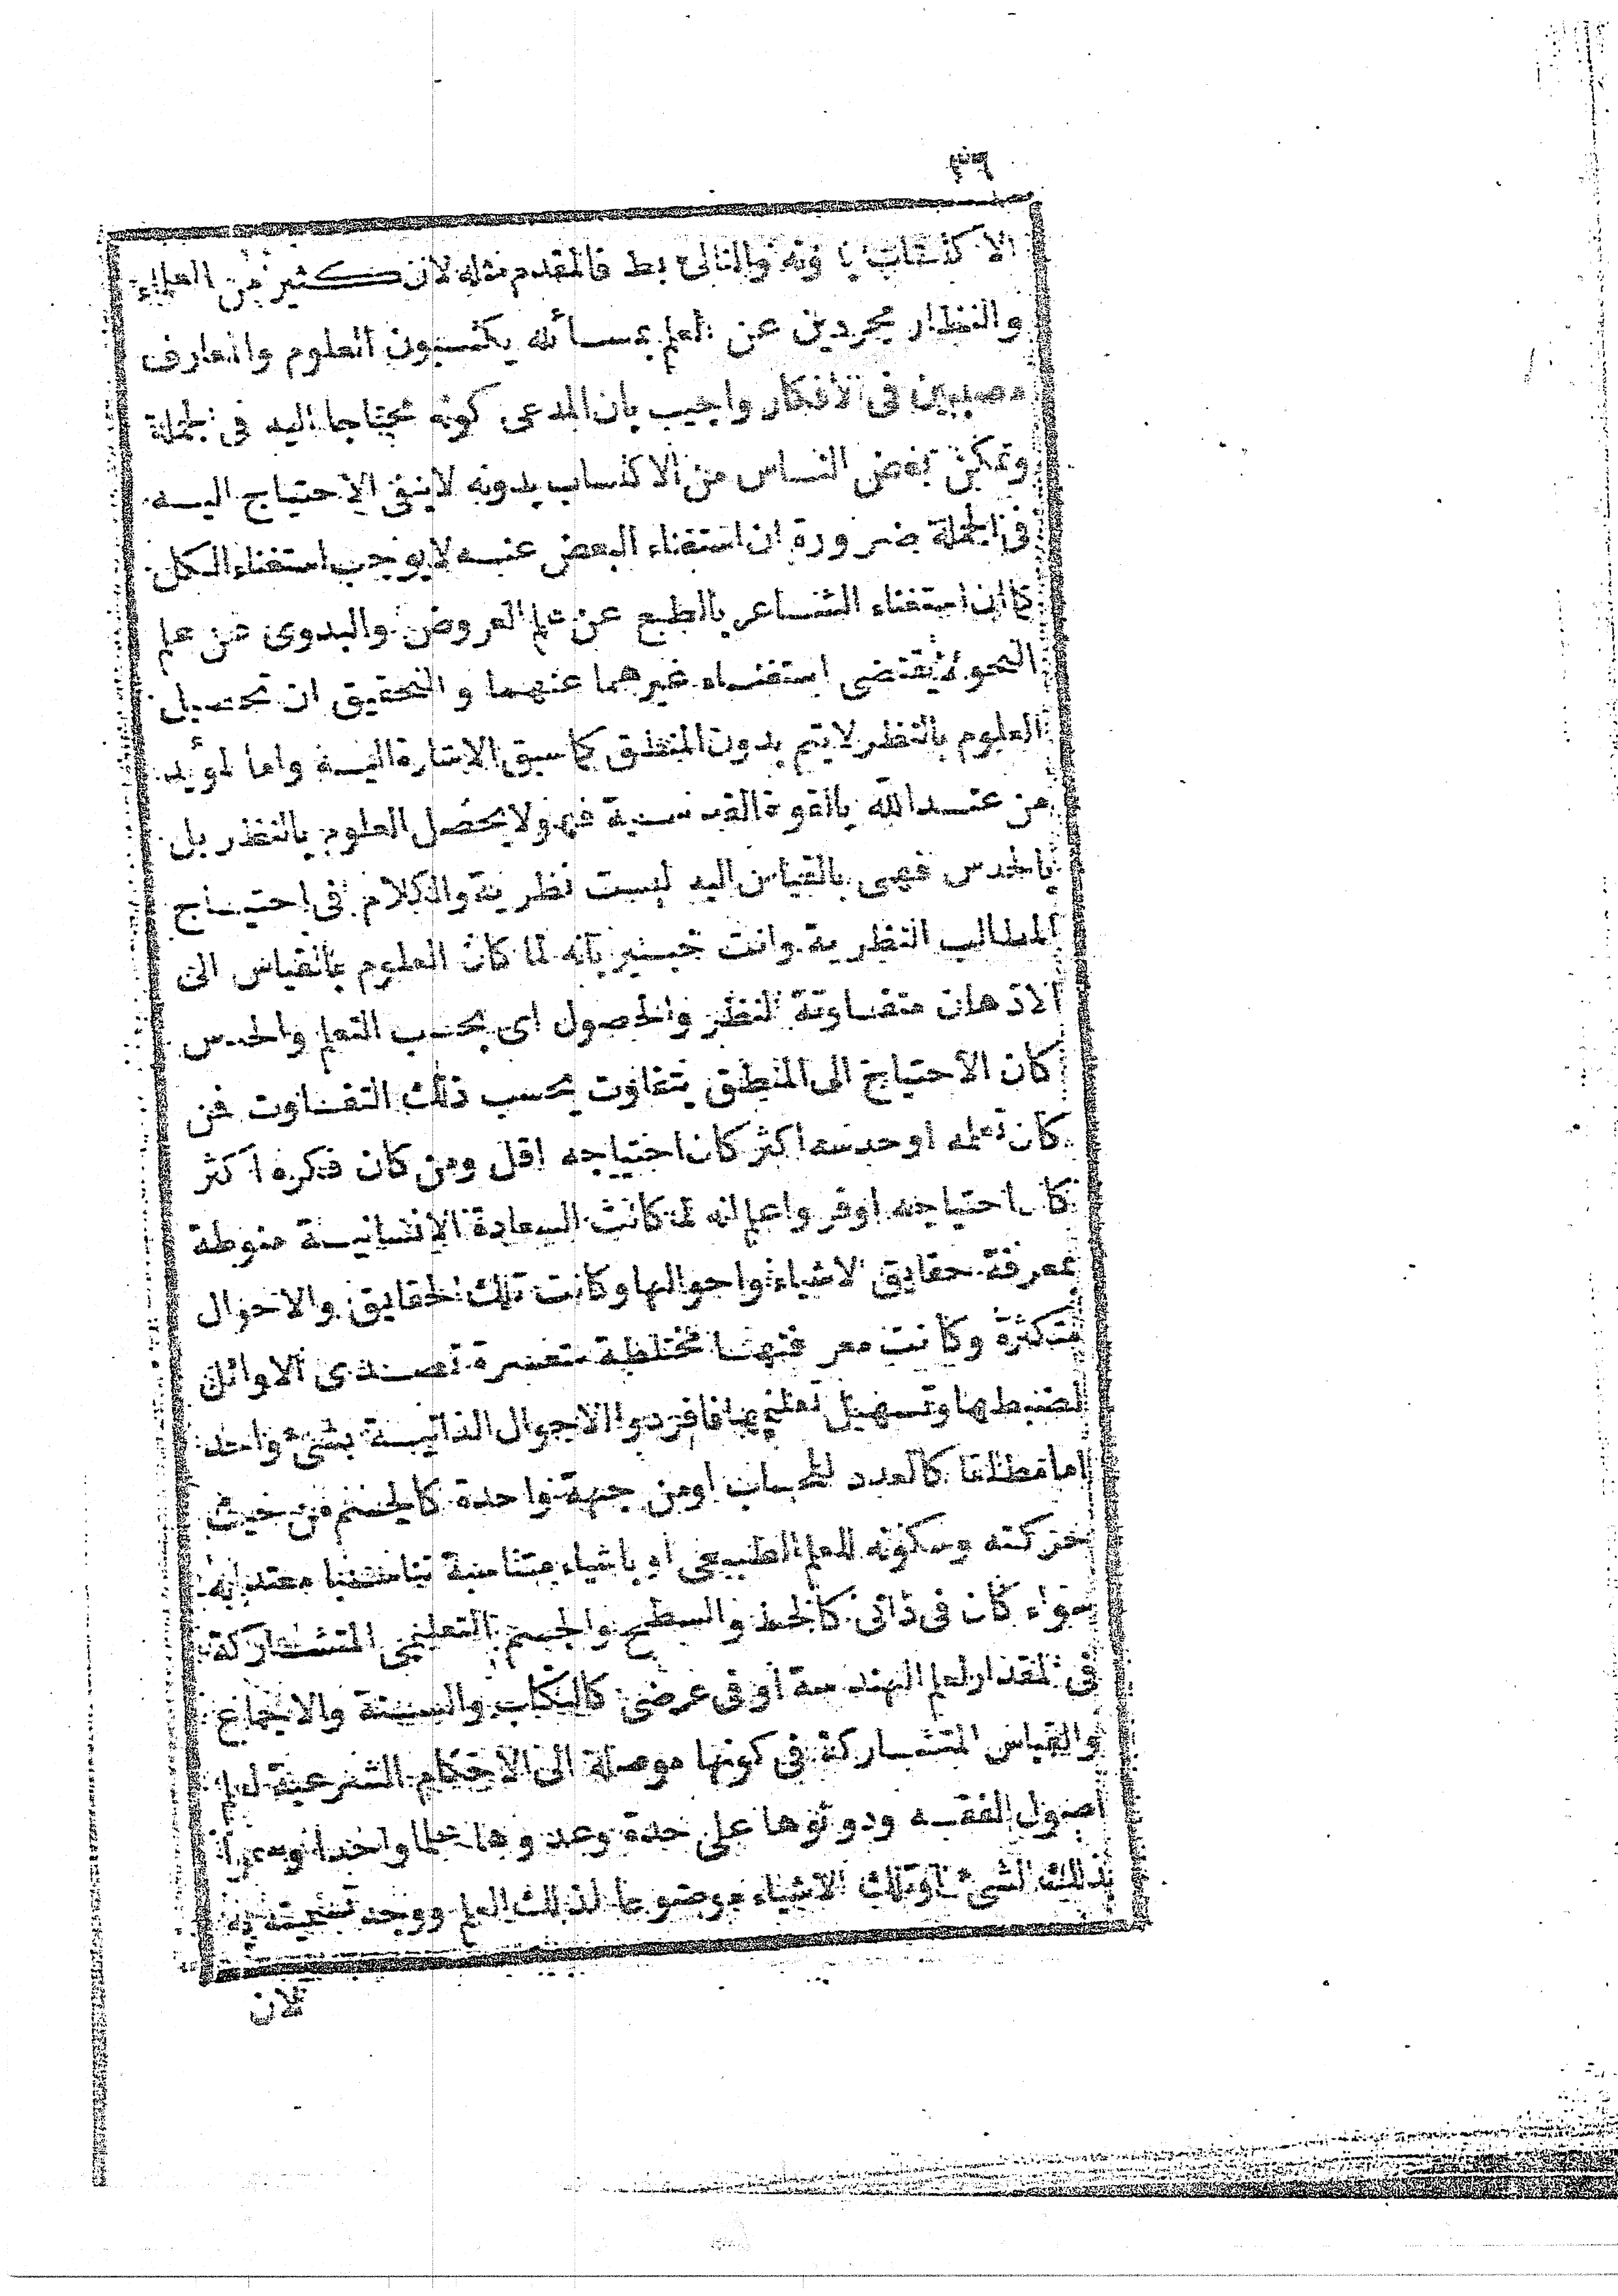 ٣٦
الاكتساب بدونه والتالى بط فالمقدم مثله لان كثير من العلماء
والنظار مجردين عن العلم بمسائله يكتسبون العلوم والمعارف
مصيبين فى الافكار واجيب بان المدعى كونه محتاجا اليه فى الجملة
وتمكن بعض الناس من الاكتساب بدونه لاينفى الاحتياج اليه
فى الجملة ضرورة ان استغناء البعض عنه لايوجب استغناء الكل
كما ان استغناء الشاعر بالطبع عن علم العروض والبدوى عن علم
النحو لايقتضى استغناء غيرهما عنهما والتحقيق ان تحصيل
العلوم بالنظر لايتم بدون المنطق كما سبق الاشارة اليه واما المؤيد
من عند الله بالقوة القدسية فهو لايحصل العلوم بالنظر بل
بالحدس فهى بالقياس اليه ليست نظرية والكلام فى احتياج
المطالب النظرية وانت خبير بانه لما كان العلوم بالقياس الى
الاذهان متفاوتة النظر والحصول اى بحسب التعلم والحدس
كان الاحتياج الى المنطق يتفاوت بحسب ذلك التفاوت فمن
كان تعلمه او حدسه اكثر كان احتياجه اقل ومن كان فكره اكثر
كان احتياجه اوفر واعلم انه لما كانت السعادة الانسانية منوطة
بمعرفة حقايق الاشياء واحوالها وكانت تلك الحقايق والاحوال
متكثرة وكانت معرفتها مختلطة متعسرة تصدى الاوائل
لضبطها وتسهيل تعليمها فافردوا الاحوال الذاتية بشئ واحد
اما مطلقا كالعدد للحساب او من جهة واحدة كالجسم من حيث
حركته وسكونه للعلم الطبيعى او باشياء متناسبة تناسبا معتدا به
سواء كان فى ذاتى كالخط والسطح والجسم التعليمى المتشاركة
فى المقدار لعلم الهندسة او فى عرضى كالكتاب والسنة والاجماع
والقياس المتشاركة فى كونها موصلة الى الاحكام الشرعية لعلم
اصول الفقه ودونوها على حدة وعدوها علما واحدا وسموا
ذلك الشئ او تلك الاشياء موضوعا لذلك العلم ووجه تسميته به
لان